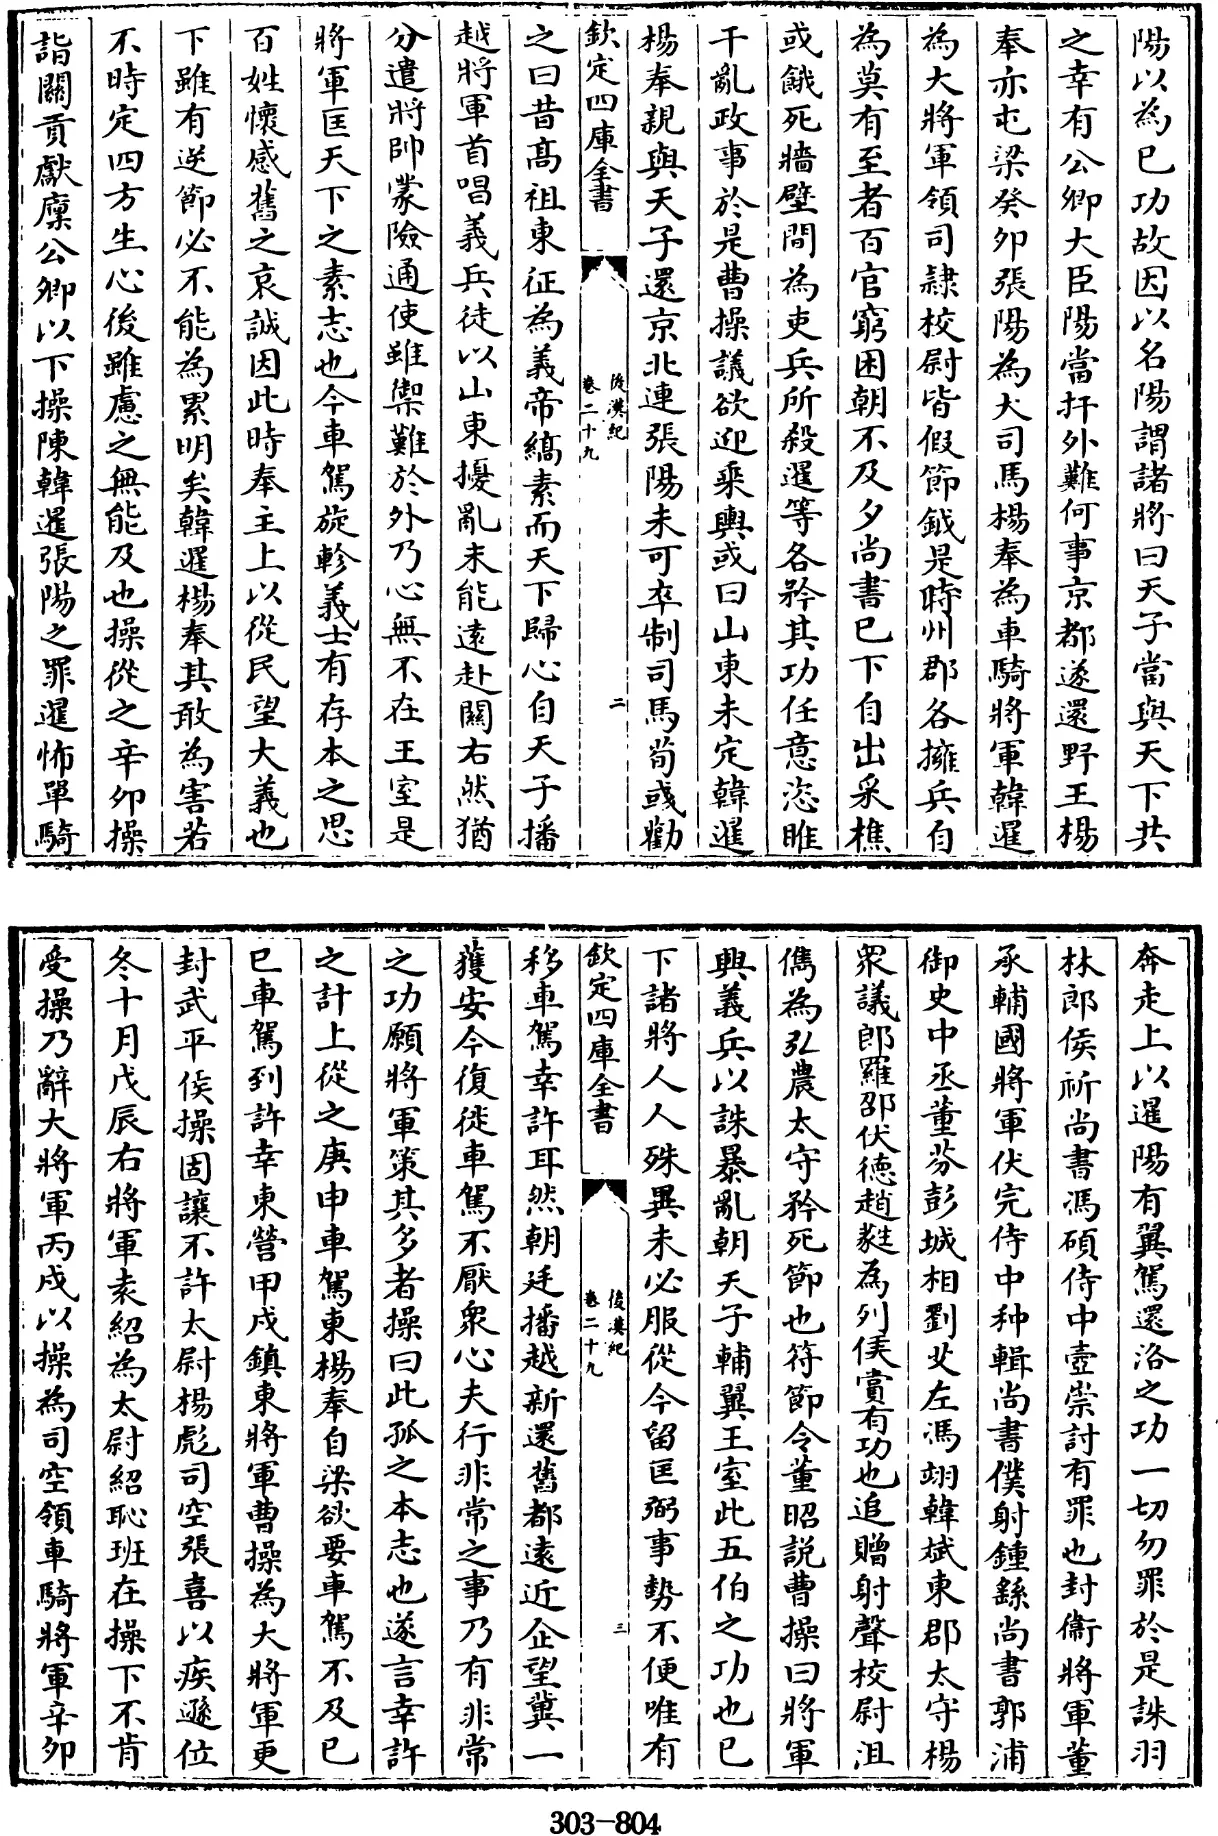 陽以為已功故因以名陽謂諸將曰天子當與天下共
之幸有公卿大臣陽當扞外難何事京都遂還野王楊
奉亦屯梁癸卯張陽為大司馬楊奉為車騎將軍韓暹
為大將軍領司隷校尉皆假節鉞是時州郡各擁兵自
為莫有至者百官窮困朝不及夕尚書已下自出采樵
或餓死牆壁間為吏兵所殺暹等各矜其功任意恣睢
干亂政事於是曹操議欲迎乘輿或曰山東未定韓暹
楊奉親與天子還京北連張陽未可卒制司馬荀彧勸
欽定四庫全書
後漢紀
卷二十九
二
之曰昔髙祖東征為義帝縞素而天下歸心自天子播
越將軍首唱義兵徒以山東擾亂未能逺赴關右然猶
分遣將帥蒙險通使雖禦難於外乃心無不在王室是
將軍匡天下之素志也今車駕旋軫義士有存本之思
百姓懷感舊之哀誠因此時奉主上以從民望大義也
下雖有逆節必不能為累明矣韓暹楊奉其敢為害若
不時定四方生心後雖慮之無能及也操從之辛卯操
詣闕貢獻廪公卿以下操陳韓暹張陽之罪暹怖單騎
奔走上以暹陽有翼駕還洛之功一切勿罪於是誅羽
林郎侯祈尚書馮碩侍中壺崇討有罪也封衞將軍董
承輔國將軍伏完侍中种輯尚書僕射鍾繇尚書郭浦
御史中丞董芬彭城相劉艾左馮翊韓斌東郡太守楊
衆議郎羅邵伏德趙蕤為列侯賞有功也追贈射聲校尉沮
儁為弘農太守矜死節也符節令董昭説曹操曰將軍
興義兵以誅暴亂朝天子輔翼王室此五伯之功也已
下諸將人人殊異未必服從今留匡弼事勢不便唯有
欽定四庫全書
後漢紀
卷二十九
三
移車駕幸許耳然朝廷播越新還舊都遠近企望冀一
獲安今復徙車駕不厭衆心夫行非常之事乃有非常
之功願將軍策其多者操曰此孤之本志也遂言幸許
之計上從之庚申車駕東楊奉自梁欲要車駕不及已
巳車駕到許幸東營甲戍鎮東將軍曹操為大將軍更
封武平侯操固讓不許太尉楊彪司空張喜以疾遜位
冬十月戊辰右將軍袁紹為太尉紹恥班在操下不肯
受操乃辭大將軍丙戍以操為司空領車騎將軍辛卯
303-804